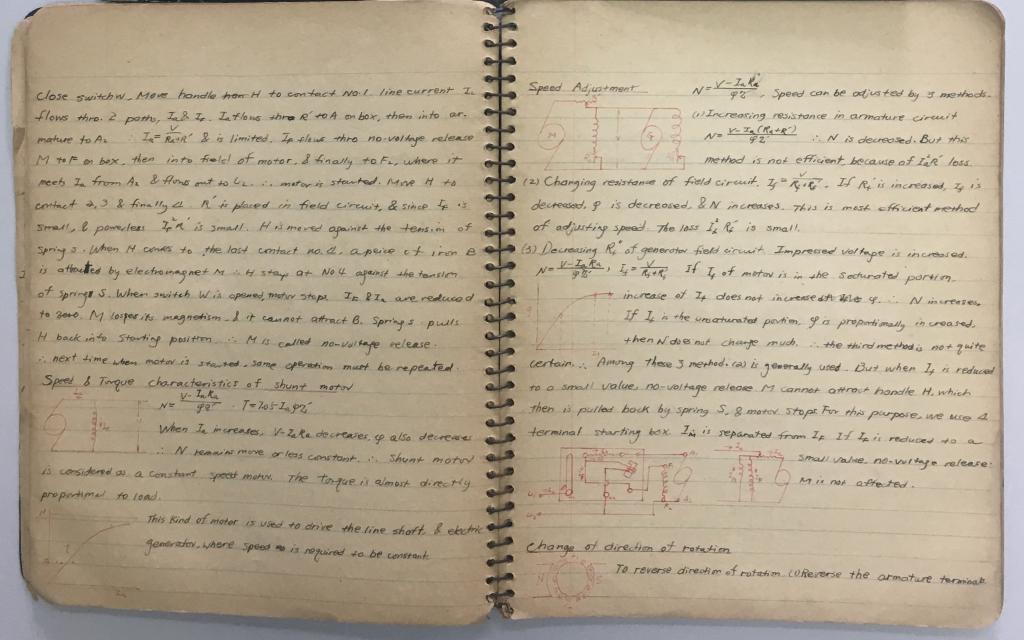 Close switch W. Move handle H to contact No. 1 line current IL
flows thro. 2 paths, Ia & If. Ia flows thro R' to A on box, then into ar-
mature to A2 ∴ Ia = V/Ra+R' & is limited. If flows thro no-voltage release
M to F on box, then into field of motor, & finally to F2, where it
meets Ia from A2 & flows out to L2 ∴ motor is started. Move H to
contact 2, 3 & finally 4. R' is placed in field circuit, & since If is
small, & powerless If²R' is small. H is moved against the tension of
spring S. When H comes to the last contact no. 4, a peice of iron B
is attracted by electromagnet M ∴ H stays at No 4 against the tension
of spring S. When switch W is opened, motor stops. If & Ia are reduced
to zero. M losses its magnetism & it cannot attract B. Spring S pulls
H back into starting position ∴ M is called no-voltage release.
∴ next time when motor is started, same operation must be repeated.
Speed & Torque characteristics of shunt motor
N = V-IaRa/φZ' . T = 7.05 IaφZ'
When Ia increases, V-IaRa decreases, φ also decreases
∴ N remains more or less constant. ∴ Shunt motor
is considered as a constant speed motor. The Torque is almost directly
proportional to load.
This kind of motor is used to drive the line shaft, & electric
generator, where speed is required to be constant.
Speed Adjustment N = V-IaRa/φZ' , Speed can be adjusted by 3 methods.
(1) Increasing resistance in armature circuit
N = V-Ia(Ra+R')/φZ' ∴ N is decreased. But this
method is not efficient because of Ia²R' loss.
(2) Changing resistance of field circuit. If = V/Rf+Rf' . If Rf' is increased, If is
decreased, φ is decreased, & N increases. This is most efficient method
of adjusting speed. The loss If² Rf' is small.
(3) Decreasing Rf" of generator field circuit. Impressed voltage is increased.
N = V-IaRa/φZ' , If = V/Rf+Rf' If If of motor is in the saturated portion,
increase of If does not increase φ. ∴ N increases.
If If is the unsaturated portion, φ is proportionally increased,
then N does not change much. ∴ the third method is not quite
certain. ∴ Among these 3 methods (2) is generally used. But when If is reduced
to a small value, no-voltage release M cannot attract handle H, which
then is pulled back by spring S, & motor stops. For this purpose, we use 4
terminal starting box. Im is separated from If. If If is reduced to a
small value, no-voltage release
M is not affected.
Change of direction of rotation
To reverse direction of rotation (1) Reverse the armature terminals